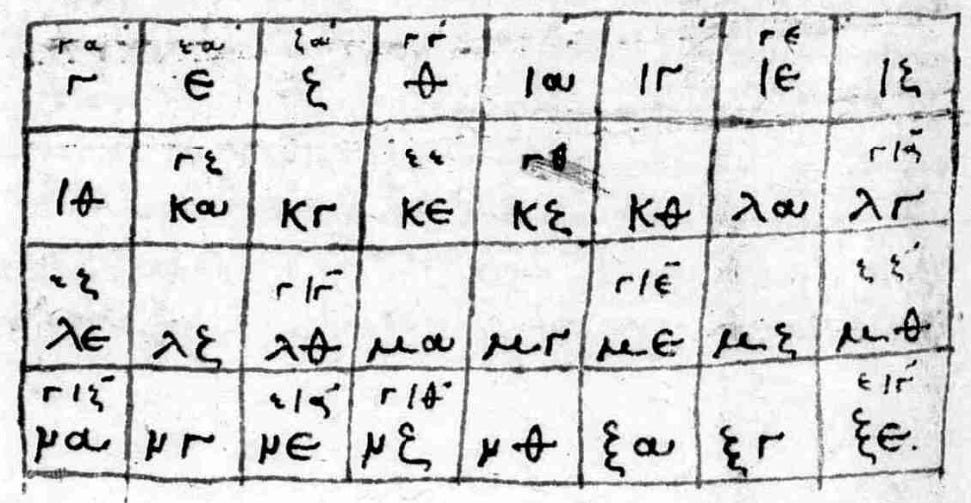 γα εα ζα γγ γε
γ ε ζ θ ια ιγ ιε ιζ
γζ εε γθ για
ιθ κα κγ κε κζ κθ λα λγ
εζ γιγ γιε ζζ
λε λζ λθ μα μγ με μζ μθ
γιζ εια γιθ ειγ
να νγ νε νζ νθ ξα ξγ ξε.